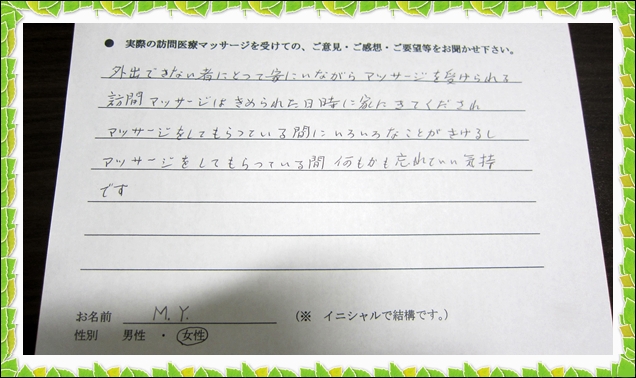 ● 実際の訪問医療マッサージを受けての、ご意見・ご感想・ご要望等をお聞かせ下さい。
外出できない者にとって家にいながらマッサージを受けられる
訪問マッサージはきめられた日時に家にきてくだされ
マッサージをしてもらっている間にいろいろなことがきけるし
マッサージをしてもらっている間何もかも忘れていい気持
です
お名前 M.Y. (※ イニシャルで結構です。)
性別 男性 ・ 女性